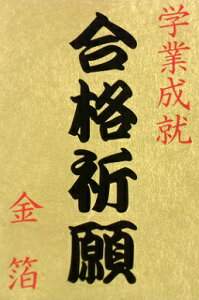 学業成就
合格祈願
金箔